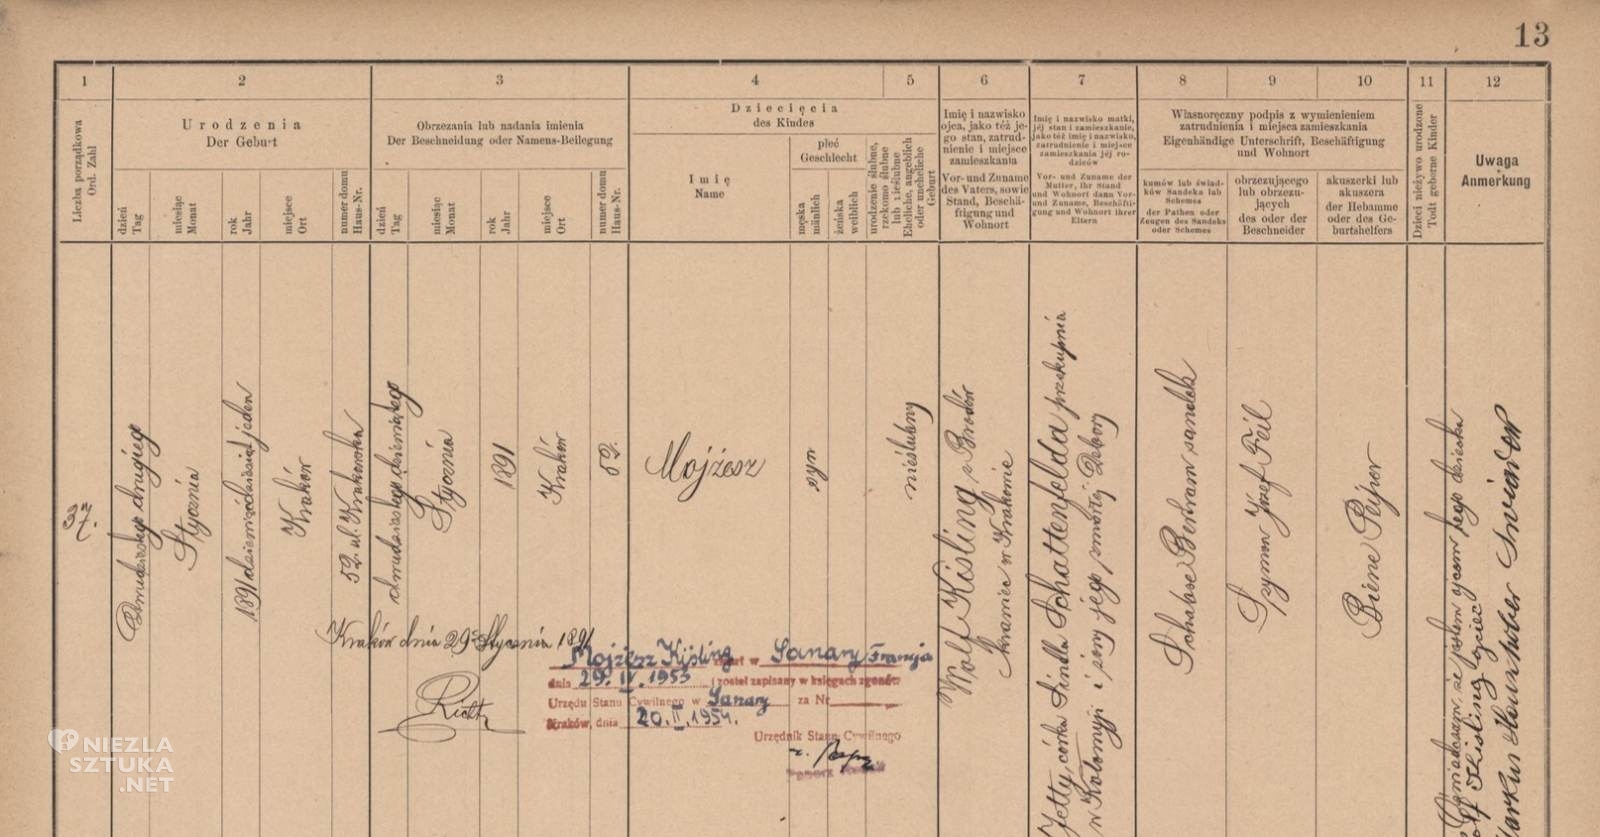 13
1
2
3
4
5
6
7
8
9
10
11
12
Liczba porządkowa
Ord. Zahl
Urodzenia
Der Geburt
dzień
Tag
miesiąc
Monat
rok
Jahr
miejsce
Ort
numer domu
Haus-Nr.
Obrzezania lub nadania imienia
Der Beschneidung oder Namens-Beilegung
dzień
Tag
miesiąc
Monat
rok
Jahr
miejsce
Ort
numer domu
Haus-Nr.
Dziecięcia
des Kindes
Imię
Name
płeć
Geschlecht
męska
mänlich
żeńska
weiblich
urodzenie ślubne,
rzekomo ślubne
lub nieślubne
Eheliche, angeblich
oder uneheliche
Geburt
Imię i nazwisko
ojca, jako też je-
go stan, zatrud-
nienie i miejsce
zamieszkania
Vor- und Zuname
des Vaters, sowie
Stand, Beschä-
ftigung und
Wohnort
Imię i nazwisko matki,
jéj stan i zamieszkanie,
jako też imię i nazwisko,
zatrudnienie i miejsce
zamieszkania jéj ro-
dziców
Vor- und Zuname der
Mutter, ihr Stand
und Wohnort dann Vor-
und Zuname, Beschäfti-
gung und Wohnort ihrer
Eltern
Własnoręczny podpis z wymienieniem
zatrudnienia i miejsca zamieszkania
Eigenhändige Unterschrift, Beschäftigung
und Wohnort
kumów lub świad-
ków Sandeka lub
Schemes
der Pathen oder
Zeugen des Sandeks
oder Schemes
obrzezującego
lub obrzezu-
jących
des oder der
Beschneider
akuszerki lub
akuszera
der Hebamme
oder des Ge-
burtshelfers
Dzieci nieżywo urodzone
Todt geborne Kinder
Uwaga
Anmerkung
37.
drugiego
Stycznia
1891 dziewięćdziesiąt jeden
Kraków
52. ul. Krakowska
Stycznia
1891
Kraków
52.
Mojżesz
syn
nieślubny
Wolf Kisling z Brodów
kramiec w Krakowie
Jetty, córka Sindla Schattenfelda przekupnia
w Kołomyji i żony jego zmarłej Debory
Schabse Bertram sandek
Szymon Józef Feil
Biene Pejser
Oświadczam, że jestem ojcem tego dziecka
Wolf Kisling ojciec
Markus
Kraków dnia 29 Stycznia 1891
Mojżesz Kisling zmarł w Sanary Francja
dnia 29. IV. 1953 i został zapisany w księgach zgonów
Urzędu Stanu Cywilnego w Sanary za Nr
Kraków, dnia 20. II. 1954.
Urzędnik Stanu Cywilnego
NIEZLA
SZTUKA
.NET